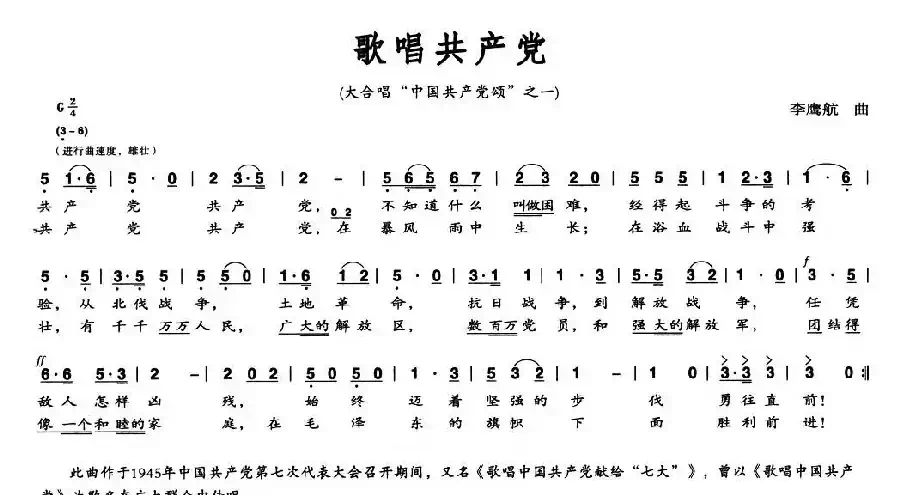 歌唱共产党
(大合唱“中国共产党颂”之一)
G 2/4
李鹰航 曲
(3-6)
(进行曲速度，雄壮)
5 1·6 | 5 · 0 | 2 3·5 | 2 - | 5 6 5 6 7 | 2 3 2 0 | 5 5 5 | 1 2·3 | 1 · 6 |
共产党 共产党，不知道什么叫做困难，经得起斗争的考
0 2
共产党 共产党，在暴风雨中生长；在浴血战斗中强
5 · 5 | 3·5 5 | 5 5 0 | 1·6 1 2 | 5 · 0 | 3·1 1 | 1 · 3 | 5·5 3 2 | 1 · 3 |
f
验，从北伐战争，土地革命，抗日战争，到解放战争，任凭
壮，有千千万万人民，广大的解放区，数百万党员，和强大的解放军，团结得
ff
6·6 5·3 | 2 - | 2 0 2 | 5 0 5 0 | 1 · 3 | 5 3 2 | 1 - | 1 0 | 3·3 3 | 3 0 :||
敌人怎样凶残，始终迈着坚强的步伐勇往直前！
像一个和睦的家庭，在毛泽东的旗帜下面胜利前进！
此曲作于1945年中国共产党第七次代表大会召开期间，又名《歌唱中国共产党献给“七大”》，曾以《歌唱中国共产